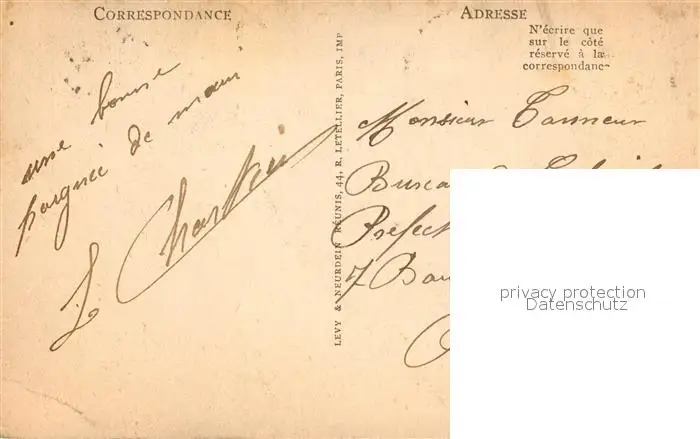 CORRESPONDANCE
ADRESSE
N'écrire que
sur le côté
réservé à la
correspondance
une bonne
poignée de main
LEVY & NEURDEIN RÉUNIS, 44, R. LETELLIER, PARIS, IMP
Monsieur Tanneur
Bureau
Préfect
7 
privacy protection
Datenschutz